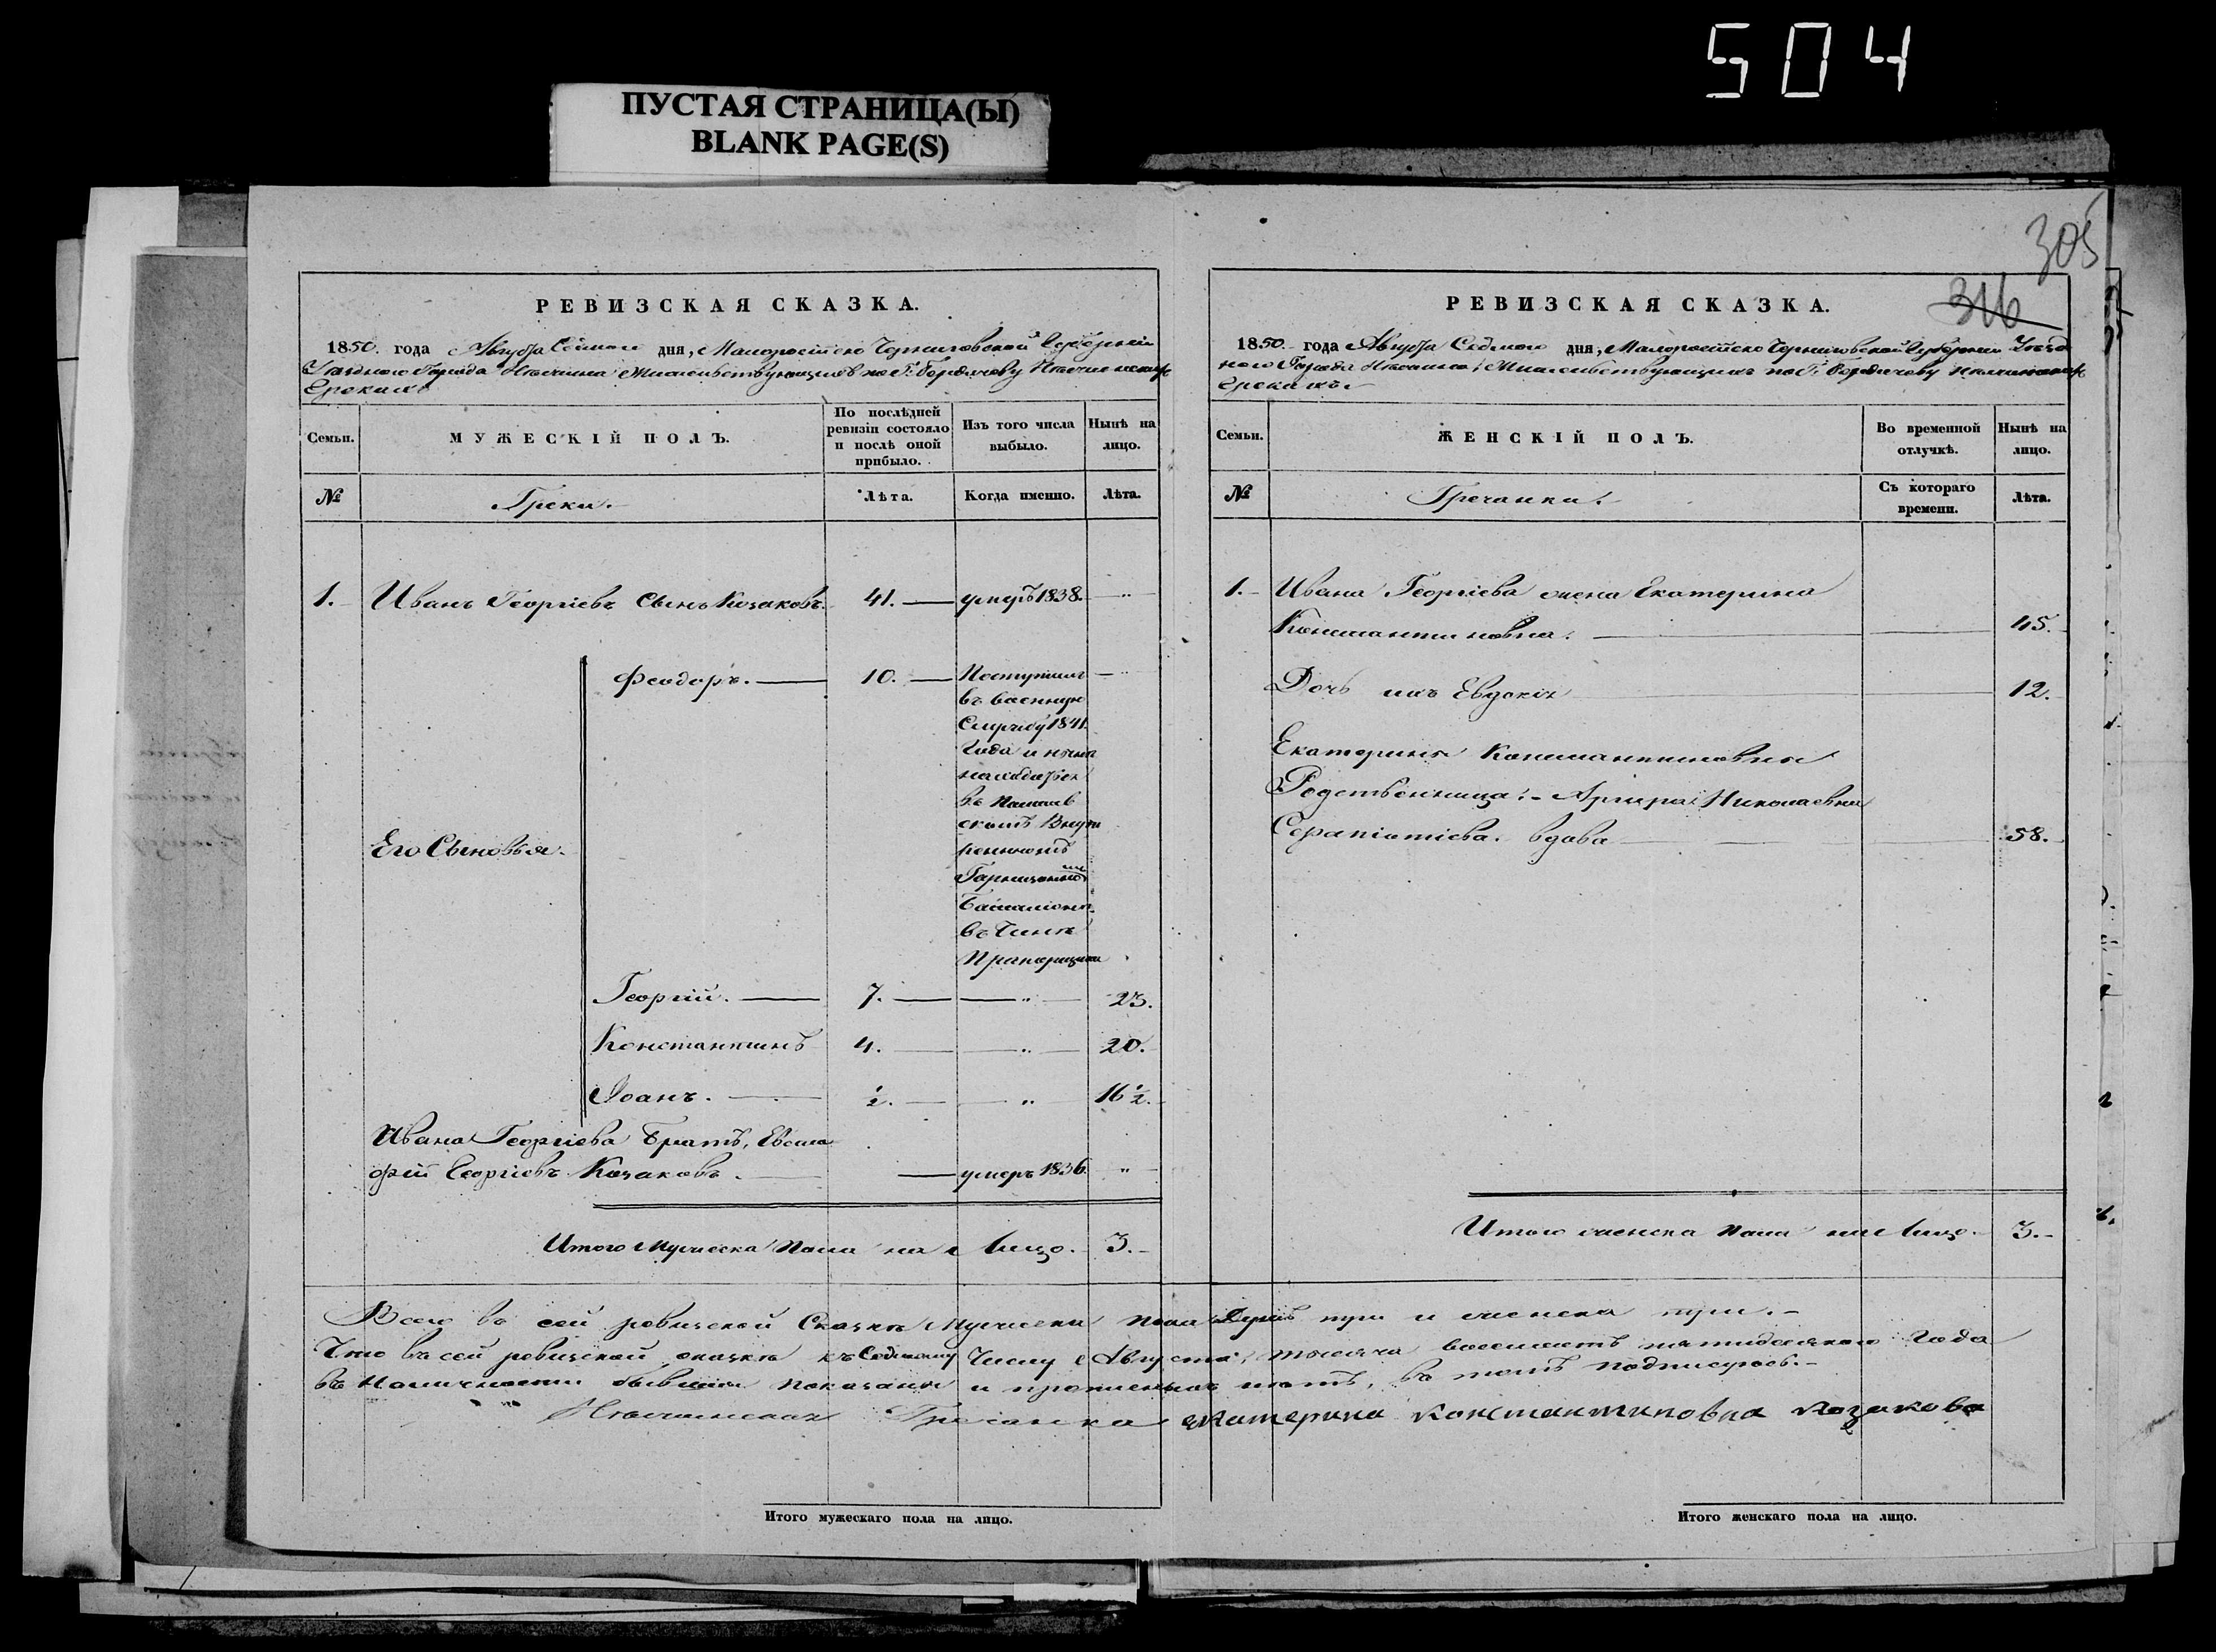 504
ПУСТАЯ СТРАНИЦА(Ы)
BLANK PAGE(S)
305
316
РЕВИЗСКАЯ СКАЗКА.
1850. года Августа Седмого дня, Малоросійско Черниговской Губерніи
Уезднаго Города Нѣжина Жительствующихъ по Г. Бердичеву Нѣжинскихъ
Грековъ
Семьи.
МУЖЕСКІЙ ПОЛЪ.
По послѣдней ревизіи состояло и послѣ оной прибыло.
Изъ того числа выбыло.
Нынѣ на лицо.
№
Греки.
Лѣта.
Когда именно.
Лѣта.
1. Иванъ Георгіевъ Сынъ Козаковъ. 41. умеръ 1838. "
Его Сыновья.
Феодоръ. 10. Поступилъ
въ военную
Службу 1841.
Года и нынѣ
находится
въ
скомъ Внут
ренномъ
Гарнизонномъ
Баталіонѣ
въ Чинѣ
Прапорщика
Георгій. 7. " 23.
Константинъ 4. " 20.
Іоанъ. ½. " 16½.
Ивана Георгіева Братъ, Евста
фій Георгіевъ Козаковъ. умеръ 1836. "
Итого Мужеска Пола на Лицо. 3.
РЕВИЗСКАЯ СКАЗКА.
1850. года Августа Седмого дня, Малоросійско Черниговской Губерніи Уѣзд
ного Города Нѣжина, Жительствующихъ по Г. Бердичеву
Грековъ
Семьи.
ЖЕНСКІЙ ПОЛЪ.
Во временной отлучкѣ.
Нынѣ на лицо.
№
Гречанки.
Съ котораго времени.
Лѣта.
1. Ивана Георгіева жена Екатерина
Константиновна. 45.
Дочь ихъ Евдокія 12.
Екатерины Константиновны
Родственница: Аргира Николаевна
вдова 58.
Итого женска пола на Лицо. 3.
Всего въ сей ревизской Сказкѣ Мужеска пола Душъ три и женска три.
Что въ сей ревизской сказкѣ къ Седмому Числу Августа, тысяча восемсотъ пятидесятого Года
въ Наличности бывшія показаны и прописныхъ нѣтъ, въ томъ подписуюсь.
Нѣжинская Гречанка екатерина константиновна козакова
Итого мужескаго пола на лицо.
Итого женскаго пола на лицо.